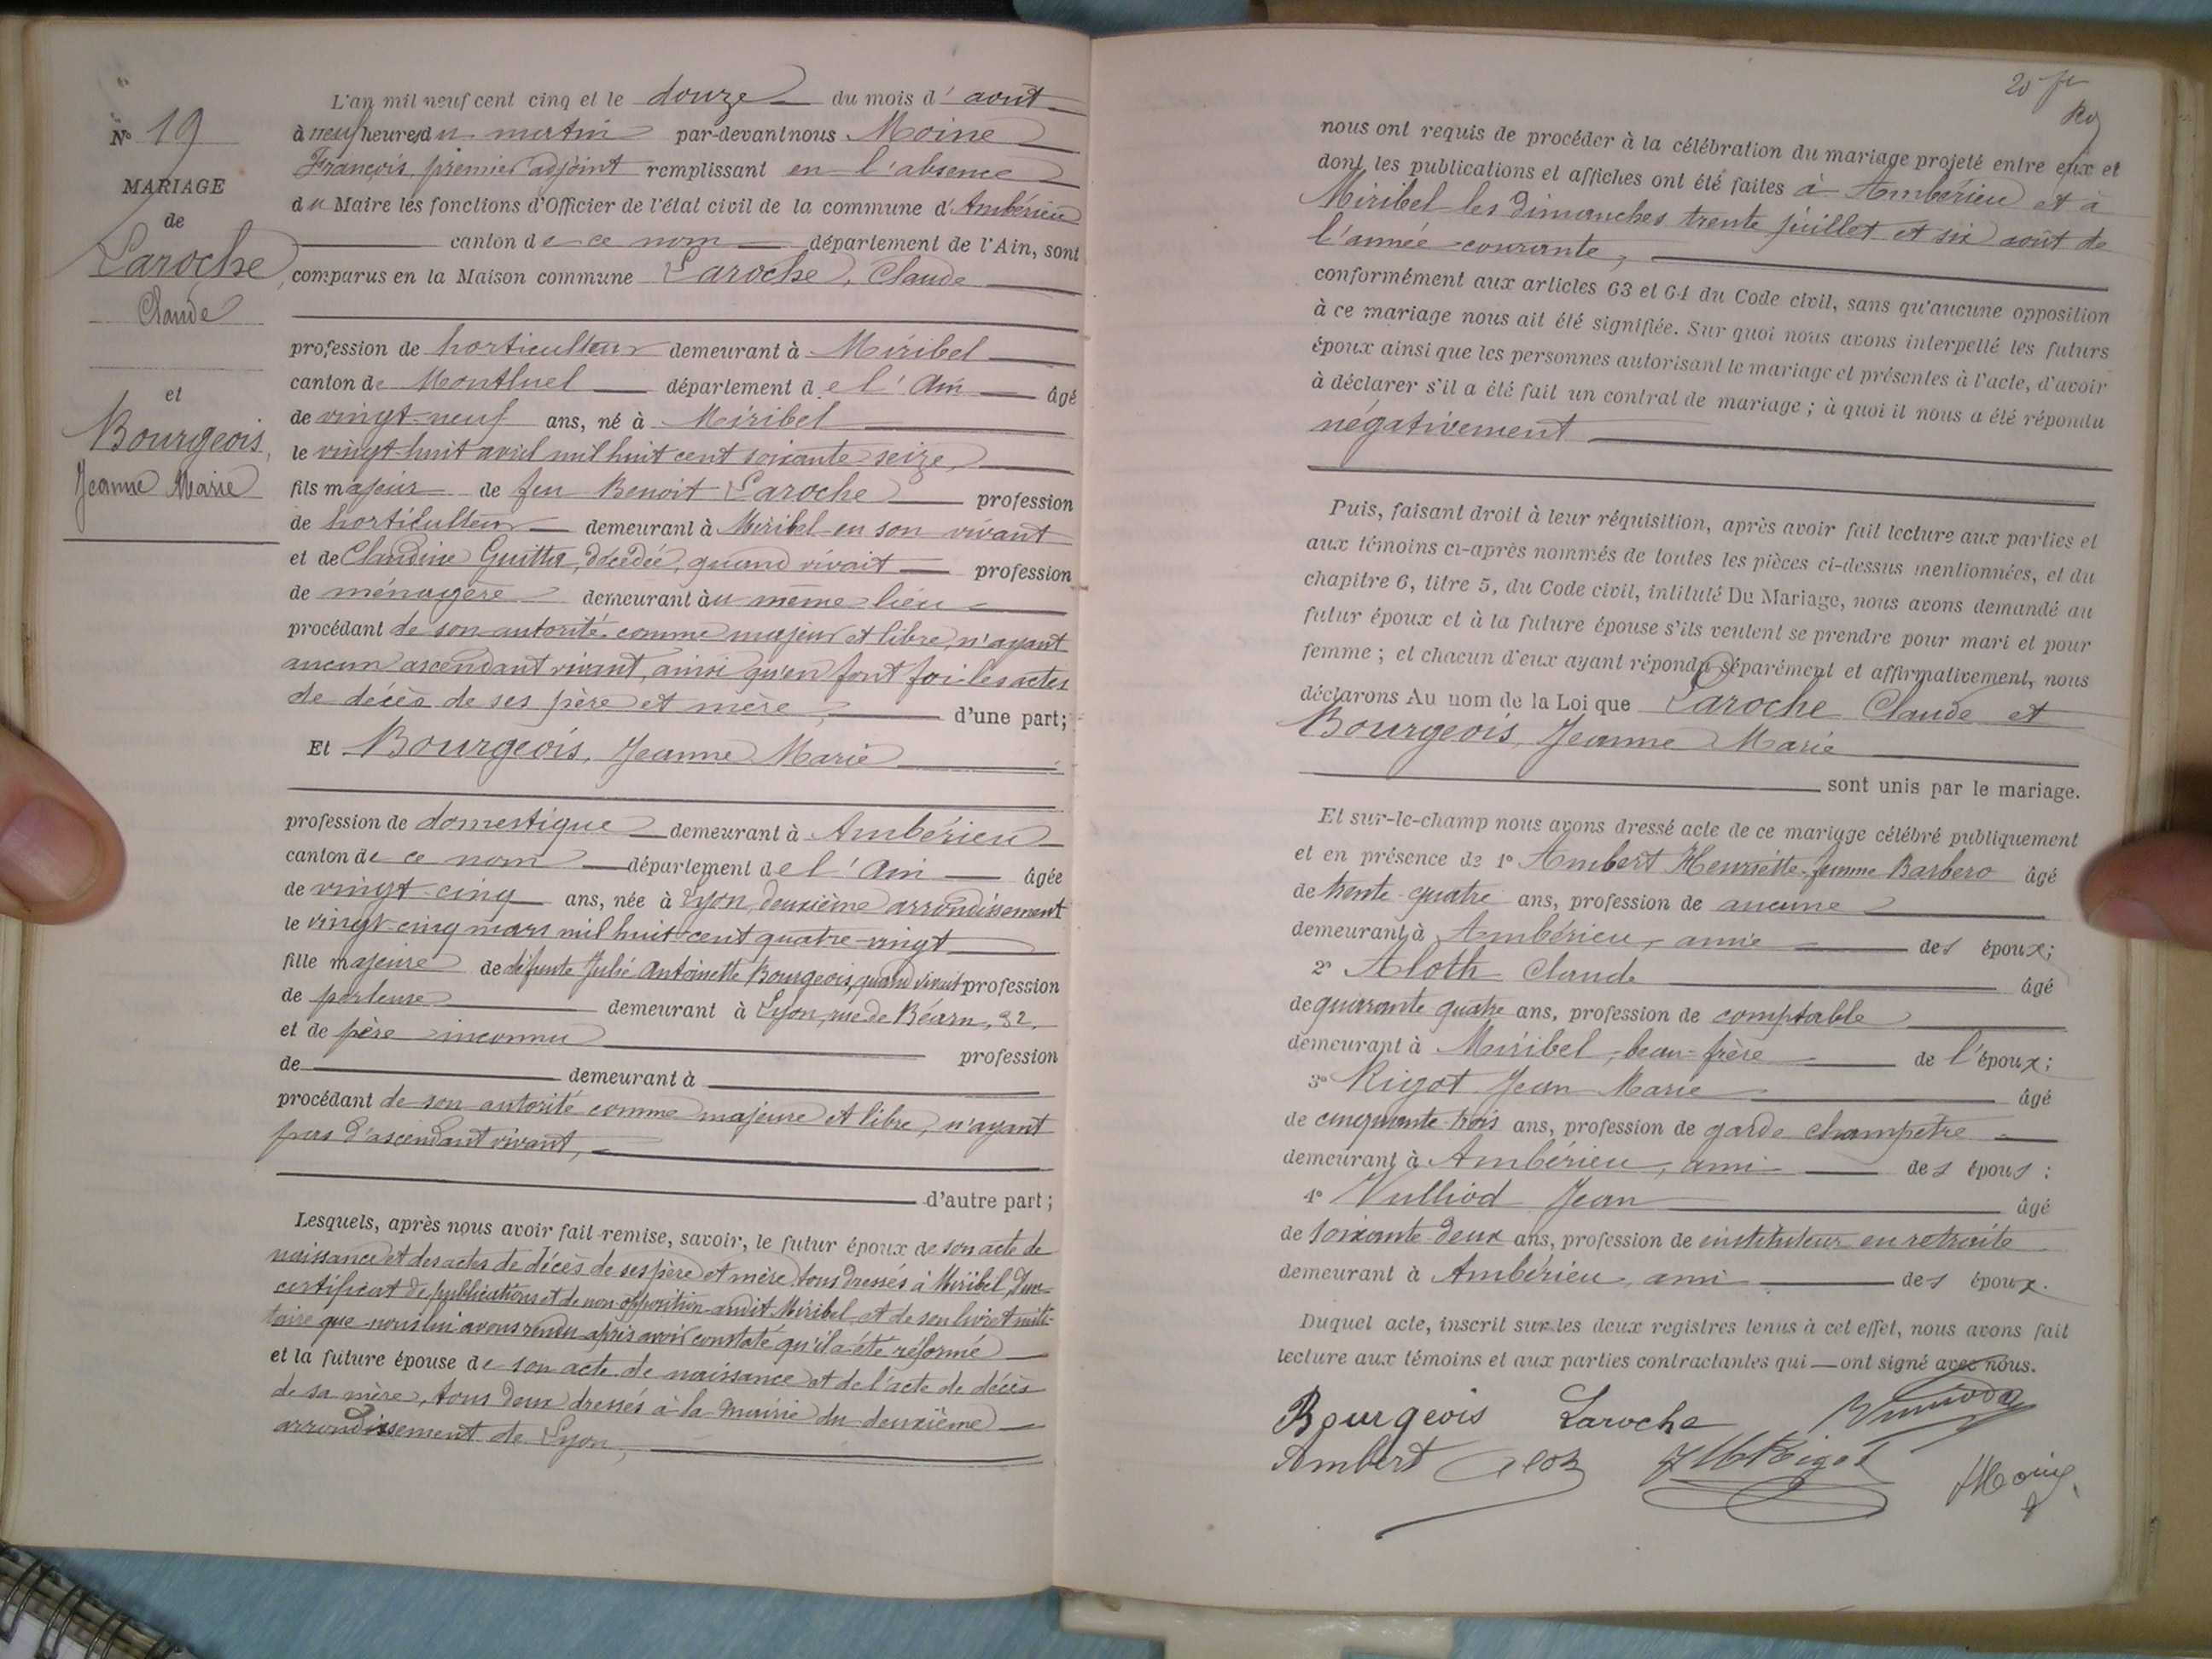 N° 19
MARIAGE
de
Laroche
Claude
et
Bourgeois,
Jeanne Marie
L'an mil neuf cent cinq et le douze du mois d'aout
à neuf heures du matin par-devant nous Moine
François premier adjoint remplissant en l'absence
du Maire les fonctions d'Officier de l'état civil de la commune d'Ambérieu
canton de ce nom département de l'Ain, sont
comparus en la Maison commune Laroche, Claude
profession de horticulteur demeurant à Miribel
canton de Montluel département de l'Ain âgé
de vingt-neuf ans, né à Miribel
le vingt-huit avril mil huit cent soixante seize,
fils majeur de feu Benoit Laroche profession
de horticulteur demeurant à Miribel en son vivant
et de Claudine Guitta, décédée, quand vivait profession
de ménagère demeurant au même lieu
procédant de son autorité comme majeur et libre, n'ayant
aucun ascendant vivant, ainsi qu'en font foi les actes
de décès de ses père et mère, d'une part;
Et Bourgeois, Jeanne Marie
profession de domestique demeurant à Ambérieu
canton de ce nom département de l'Ain âgée
de vingt-cinq ans, née à Lyon, deuxième arrondissement
le vingt-cinq mars mil huit cent quatre-vingt
fille majeure de défunte Julie Antoinette Bourgeois, quand vivait profession
de porteuse demeurant à Lyon, rue de Béarn, 32,
et de père inconnu profession
de demeurant à
procédant de son autorité comme majeure et libre, n'ayant
pas d'ascendant vivant,
d'autre part;
Lesquels, après nous avoir fait remise, savoir, le futur époux de son acte de
naissance et des actes de décès de ses père et mère tous dressés à Miribel, d'un
certificat de publications et de non opposition audit Miribel et de son livret mili-
taire que nous lui avons rendu après avoir constaté qu'il a été réformé
et la future épouse de son acte de naissance et de l'acte de décès
de sa mère, tous deux dressés à la Mairie du deuxième
arrondissement de Lyon,
20 fr
nous ont requis de procéder à la célébration du mariage projeté entre eux et
dont les publications et affiches ont été faites à Ambérieu et à
Miribel les dimanches trente juillet et six août de
l'année courante,
conformément aux articles 63 et 64 du Code civil, sans qu'aucune opposition
à ce mariage nous ait été signifiée. Sur quoi nous avons interpellé les futurs
époux ainsi que les personnes autorisant le mariage et présentes à l'acte, d'avoir
à déclarer s'il a été fait un contrat de mariage; à quoi il nous a été répondu
négativement
Puis, faisant droit à leur réquisition, après avoir fait lecture aux parties et
aux témoins ci-après nommés de toutes les pièces ci-dessus mentionnées, et du
chapitre 6, titre 5, du Code civil, intitulé Du Mariage, nous avons demandé au
futur époux et à la future épouse s'ils veulent se prendre pour mari et pour
femme; et chacun d'eux ayant répondu séparément et affirmativement, nous
déclarons Au nom de la Loi que Laroche Claude et
Bourgeois, Jeanne Marie
sont unis par le mariage.
Et sur-le-champ nous avons dressé acte de ce mariage célébré publiquement
et en présence de 1° Ambert Henriette femme Barbero âgé
de trente-quatre ans, profession de aucune
demeurant à Ambérieu, amie des époux;
2° Aloth Claude âgé
de quarante quatre ans, profession de comptable
demeurant à Miribel, beau-frère de l'époux;
3° Rigot Jean Marie âgé
de cinquante-trois ans, profession de garde champêtre
demeurant à Ambérieu, ami des épous;
4° Vulliod Jean âgé
de soixante-deux ans, profession de instituteur en retraite
demeurant à Ambérieu, ami des époux.
Duquel acte, inscrit sur les deux registres tenus à cet effet, nous avons fait
lecture aux témoins et aux parties contractantes qui ont signé avec nous.
Bourgeois Laroche
Ambert JM Rigot Moine